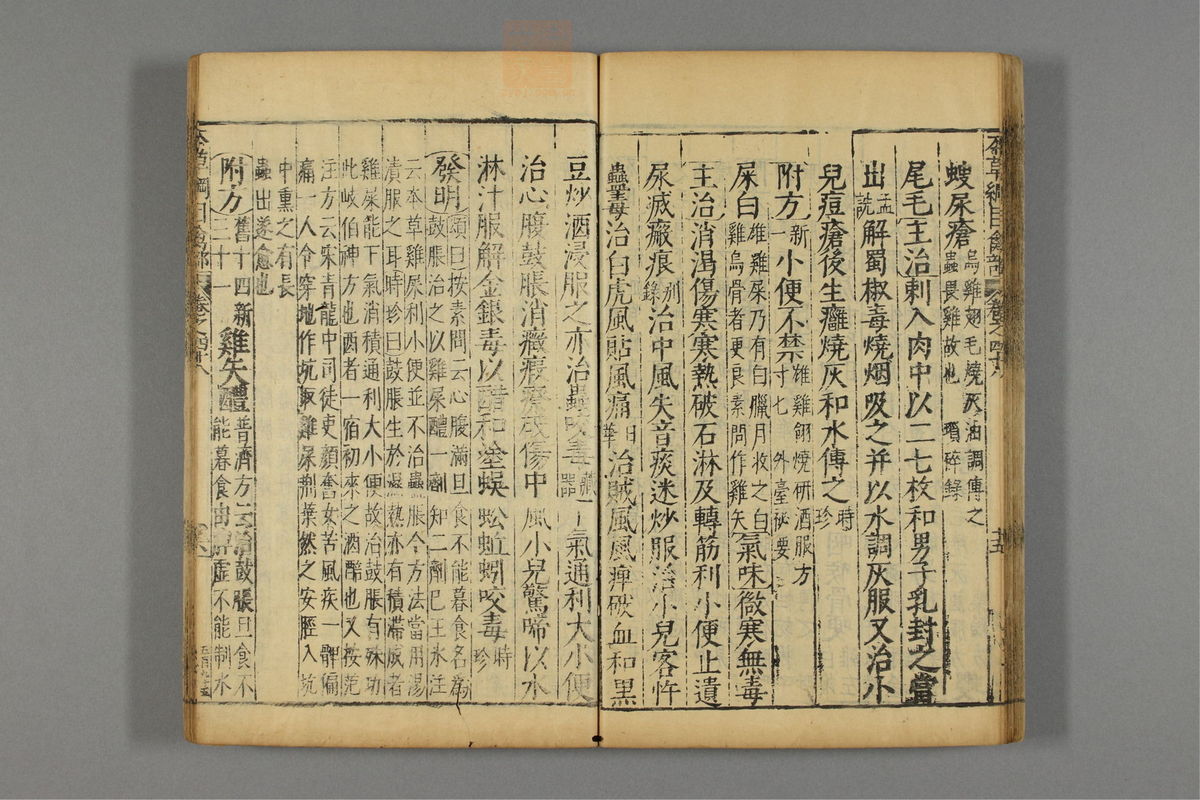 本草綱目禽部 卷之四十八 十五
蠼尿瘡烏雞翅毛燒灰油調傅之
蟲畏雞故也 瑣碎錄
尾毛主治刺入肉中以二七枚和男子乳封之當
出孟詵解蜀椒毒燒烟吸之并以水調灰服又治小
兒痘瘡後生癰燒灰和水傅之時珍
附方新一小便不禁雄雞翎燒研酒服方寸七 外臺祕要
屎白雄雞屎乃有白臘月收之白
雞烏骨者更良素問作雞矢氣味微寒無毒
主治消渴傷寒寒熱破石淋及轉筋利小便止遺
尿滅瘢痕別錄治中風失音痰迷炒服治小兒客忤
蟲毒治白虎風貼風痛日華治賊風風痺破血和黑
豆炒酒浸服之亦治蟲咬毒藏器下氣通利大小便
治心腹鼓脹消癥瘕療破傷中風小兒驚啼以水
淋汁服解金銀毒以醋和塗蜈蚣蚯蚓咬毒時珍
發明頌曰按素問云心腹滿旦食不能暮食名為
鼓脹治之以雞屎醴一劑知二劑已王氷注
云本草雞屎利小便並不治蠱脹今方法當用湯
漬服之耳時珍曰鼓脹生於濕熱亦有積滯成者
雞屎能下氣消積通利大小便故治鼓脹有殊功
此岐伯神方也醴者一宿初來之酒醅也又按范
汪方云宋青龍中司徒吏顏奮女苦風疾一髀偏
痛一人令穿地作坑取雞屎荆葉然之安脛入坑
中熏之有長
蟲出遂愈也
附方舊十四新二十一雞矢醴普濟方云治鼓脹旦食不
能暮食由脾虛不能制水
本草綱目禽部 卷之四十八